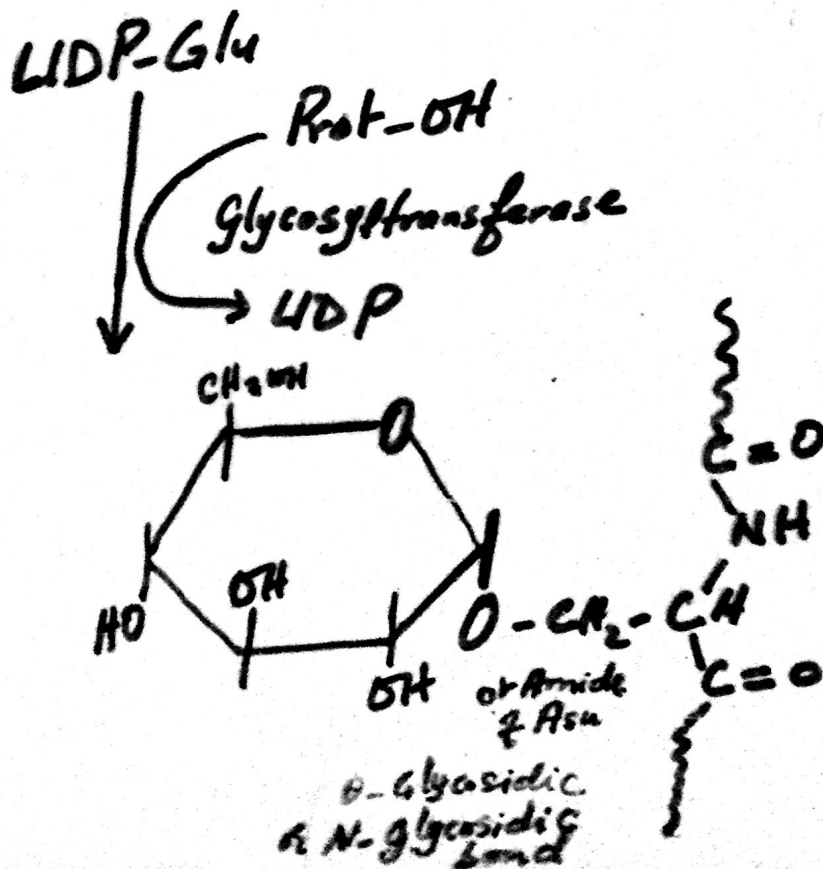 UDP-Glu
Prot-OH
Glycosyltransferase
UDP
CH₂OH
O
C=O
NH
HO
OH
OH
O-CH₂-CH
C=O
or Amide
of Asn
O-Glycosidic
& N-glycosidic
bond